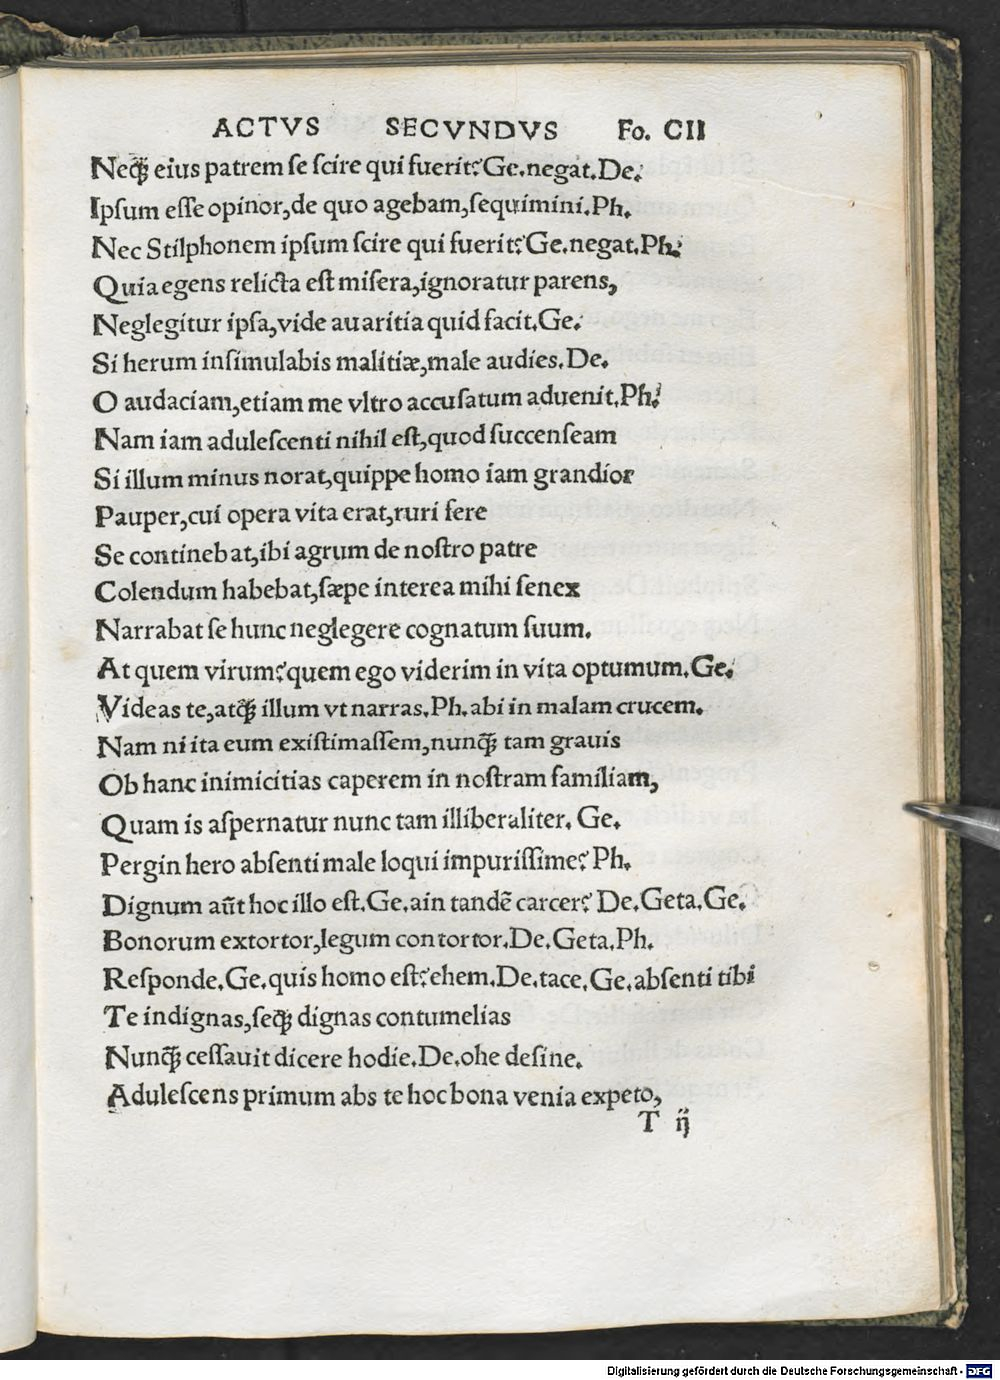 ACTVS SECVNDVS Fo. CII
Neqꝫ eius patrem se scire qui fuerit? Ge. negat. De.
Ipsum esse opinor, de quo agebam, sequimini. Ph.
Nec Stilphonem ipsum scire qui fuerit? Ge. negat. Ph.
Quia egens relicta est misera, ignoratur parens,
Neglegitur ipsa, vide auaritia quid facit. Ge.
Si herum insimulabis malitiæ, male audies. De.
O audaciam, etiam me vltro accusatum aduenit. Ph.
Nam iam adulescenti nihil est, quod succenseam
Si illum minus norat, quippe homo iam grandior
Pauper, cui opera vita erat, ruri fere
Se continebat, ibi agrum de nostro patre
Colendum habebat, sæpe interea mihi senex
Narrabat se hunc neglegere cognatum suum.
At quem virum? quem ego viderim in vita optumum. Ge.
Videas te, atqꝫ illum vt narras. Ph. abi in malam crucem.
Nam ni ita eum existimassem, nunqꝫ tam grauis
Ob hanc inimicitias caperem in nostram familiam,
Quam is aspernatur nunc tam illiberaliter. Ge.
Pergin hero absenti male loqui impurissime? Ph.
Dignum aūt hoc illo est. Ge. ain tandē carcer? De. Geta. Ge.
Bonorum extortor, legum contortor. De. Geta. Ph.
Responde. Ge. quis homo est? ehem. De. tace. Ge. absenti tibi
Te indignas, seqꝫ dignas contumelias
Nunqꝫ cessauit dicere hodie. De. ohe desine.
Adulescens primum abs te hoc bona venia expeto,
T ij
Digitalisierung gefördert durch die Deutsche Forschungsgemeinschaft - DFG